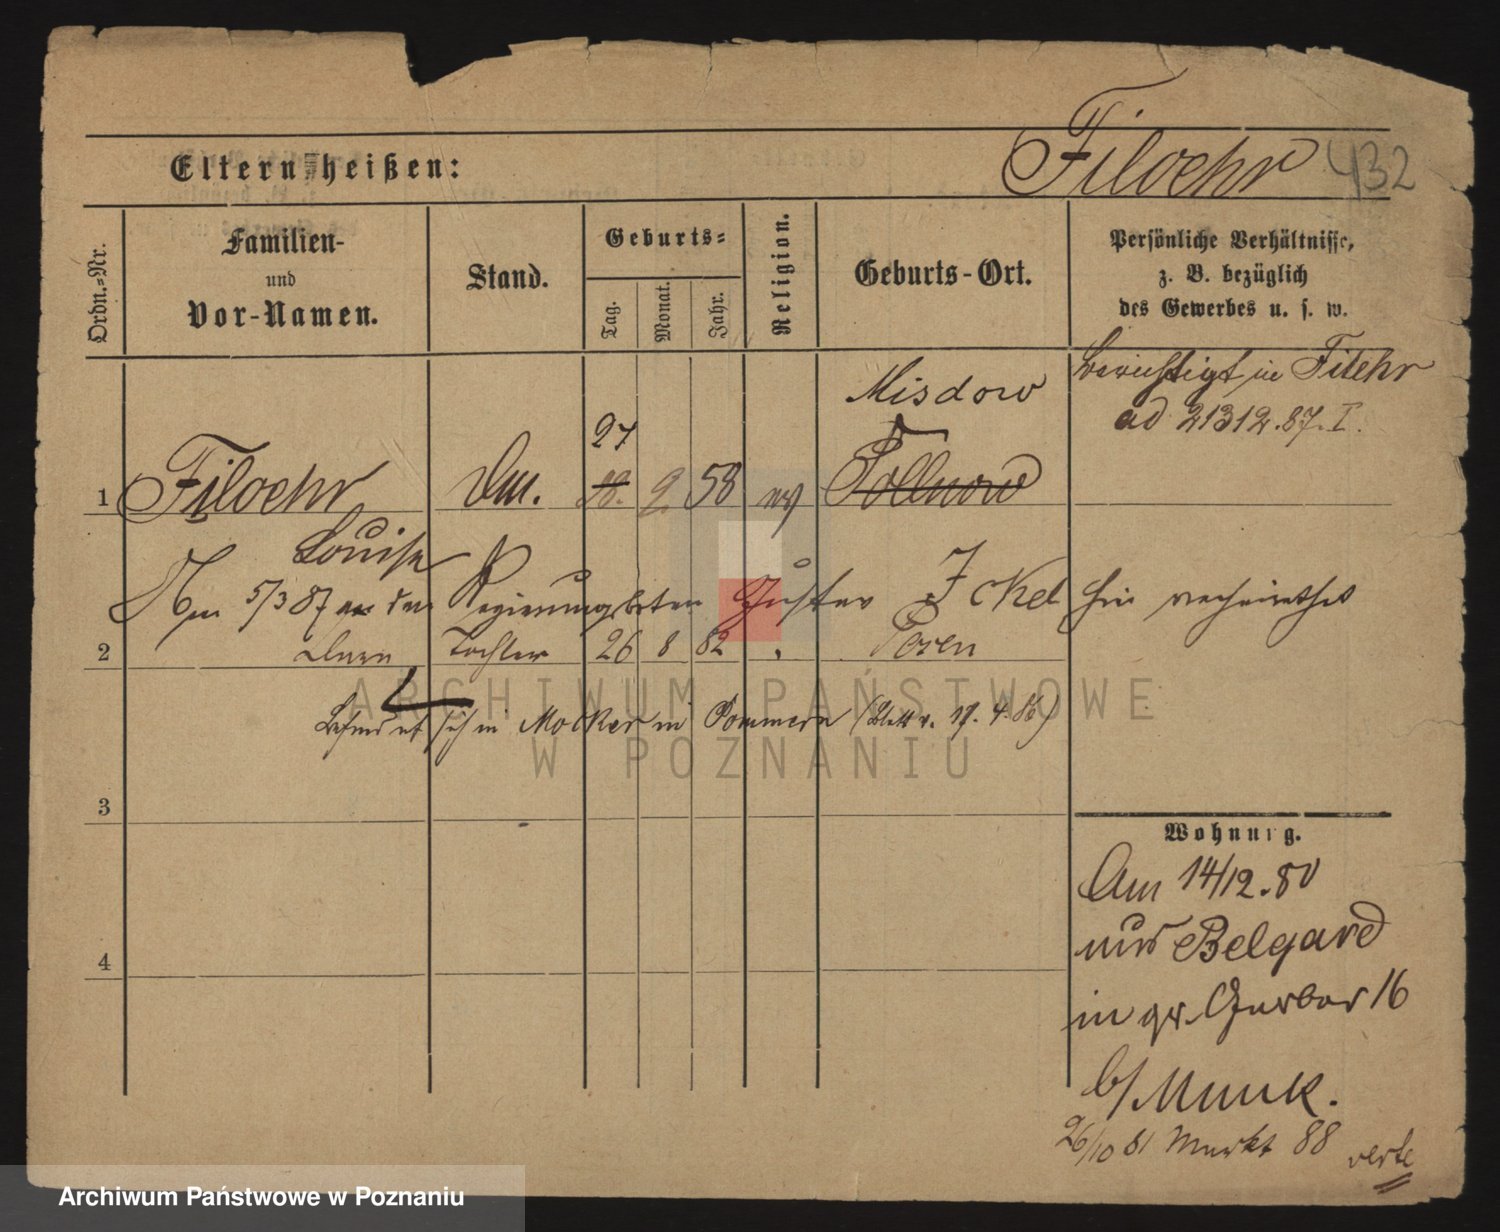 Filoehr 432
Eltern heißen:
Ordn.-Nr.
Familien-
und
Vor-Namen.
Stand.
Geburts-
Tag.
Monat.
Jahr.
Religion.
Geburts-Ort.
Persönliche Verhältnisse,
z. B. bezüglich
des Gewerbes u. s. w.
Misdow
berichtigt in Filehr
ad 21312.87.I.
27
1 Filoehr 18. 9. 58 ev Pollnow
Louise
Am 5/3 87 an den Regierungsboten Gustav Ickel hier verheirathet
2 Tochter 26 8 82 Posen
Befindet sich in Mocker in Pommern (Blatt v. 17. 4. 86)
3
Wohnung.
Am 14/12.80
aus Belgard
in gr. Gerber 16
4
b/ Munk.
26/10 81 Markt 88 verte
ARCHIWUM PAŃSTWOWE
W POZNANIU
Archiwum Państwowe w Poznaniu